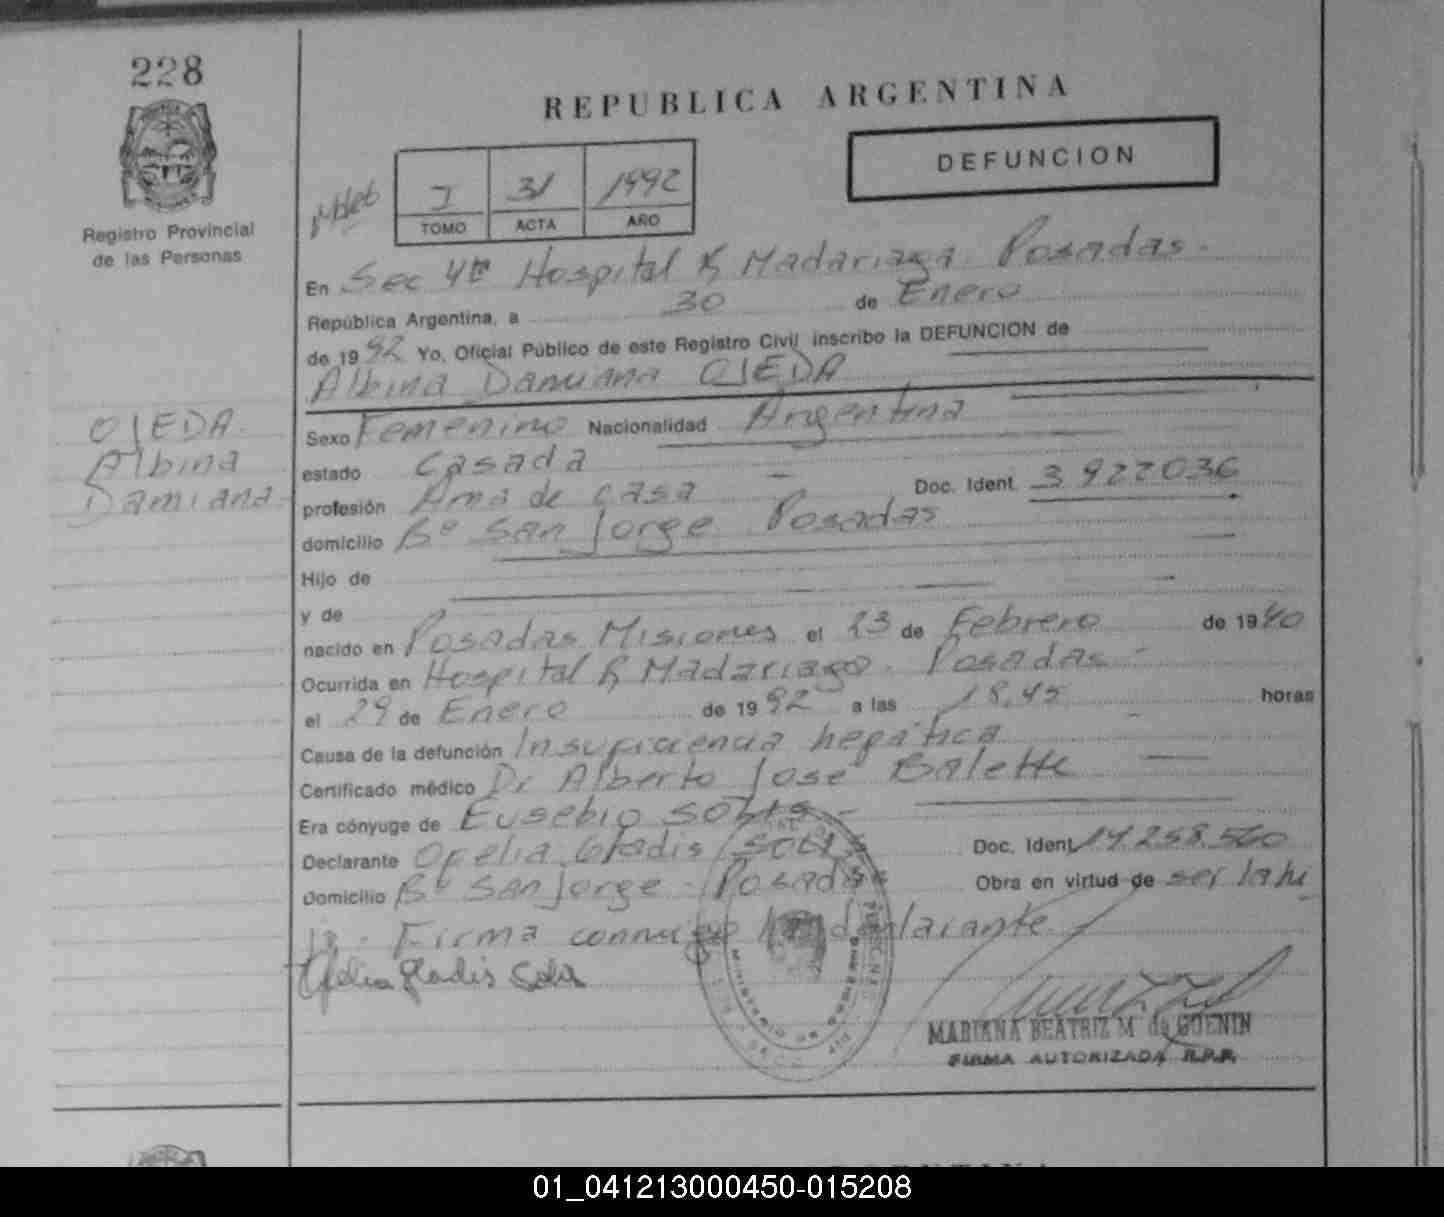 228
REPUBLICA ARGENTINA
DEFUNCION
Registro Provincial
de las Personas
I 31 1992
TOMO ACTA AÑO
En Sec 4ta Hospital R Madariaga. Posadas.
República Argentina, a 30 de Enero
de 1992 Yo, Oficial Público de este Registro Civil, inscribo la DEFUNCION de
Albina Damiana OJEDA
OJEDA
Albina
Damiana
Sexo Femenino Nacionalidad Argentina
estado Casada
profesión Ama de casa Doc. Ident. 3922036
domicilio Bº San Jorge Posadas
Hijo de
y de
nacido en Posadas Misiones el 23 de Febrero de 1940
Ocurrida en Hospital R Madariaga. Posadas-
el 29 de Enero de 1992 a las 18,45 horas
Causa de la defunción Insuficiencia hepática
Certificado médico Dr Alberto José
Era cónyuge de Eusebio
Declarante Ofelia Gladis Doc. Ident. 14.258.560
Domicilio Bº San Jorge - Posadas Obra en virtud de ser la hi
ja. Firma conmigo la declarante.
Ofelia Gladis
MARIANA BEATRIZ M de GUENIN
FIRMA AUTORIZADA R.P.P.
01_041213000450-015208